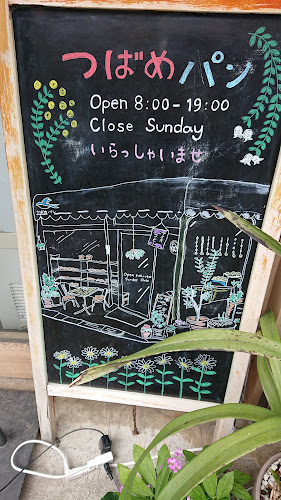 つばめパン
Open 8:00-19:00
Close Sunday
いらっしゃいませ